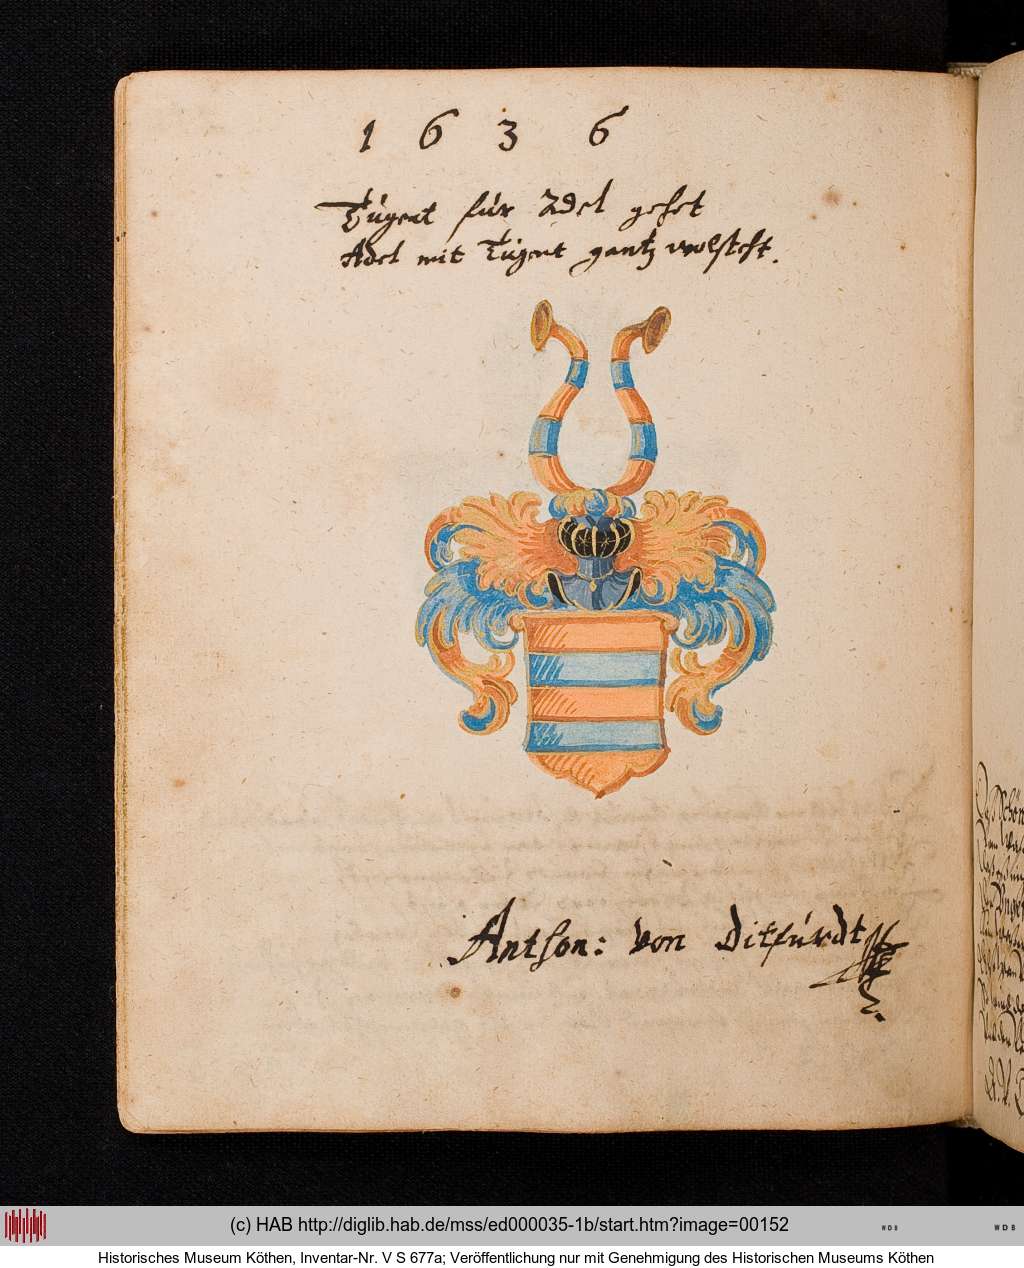 1 6 3 6
Tugent für Adel gehet
Adel mit Tugent gantz wolsteht.
Anthon: von Ditfurdt
(c) HAB http://diglib.hab.de/mss/ed000035-1b/start.htm?image=00152
WDB
WDB
Historisches Museum Köthen, Inventar-Nr. V S 677a; Veröffentlichung nur mit Genehmigung des Historischen Museums Köthen